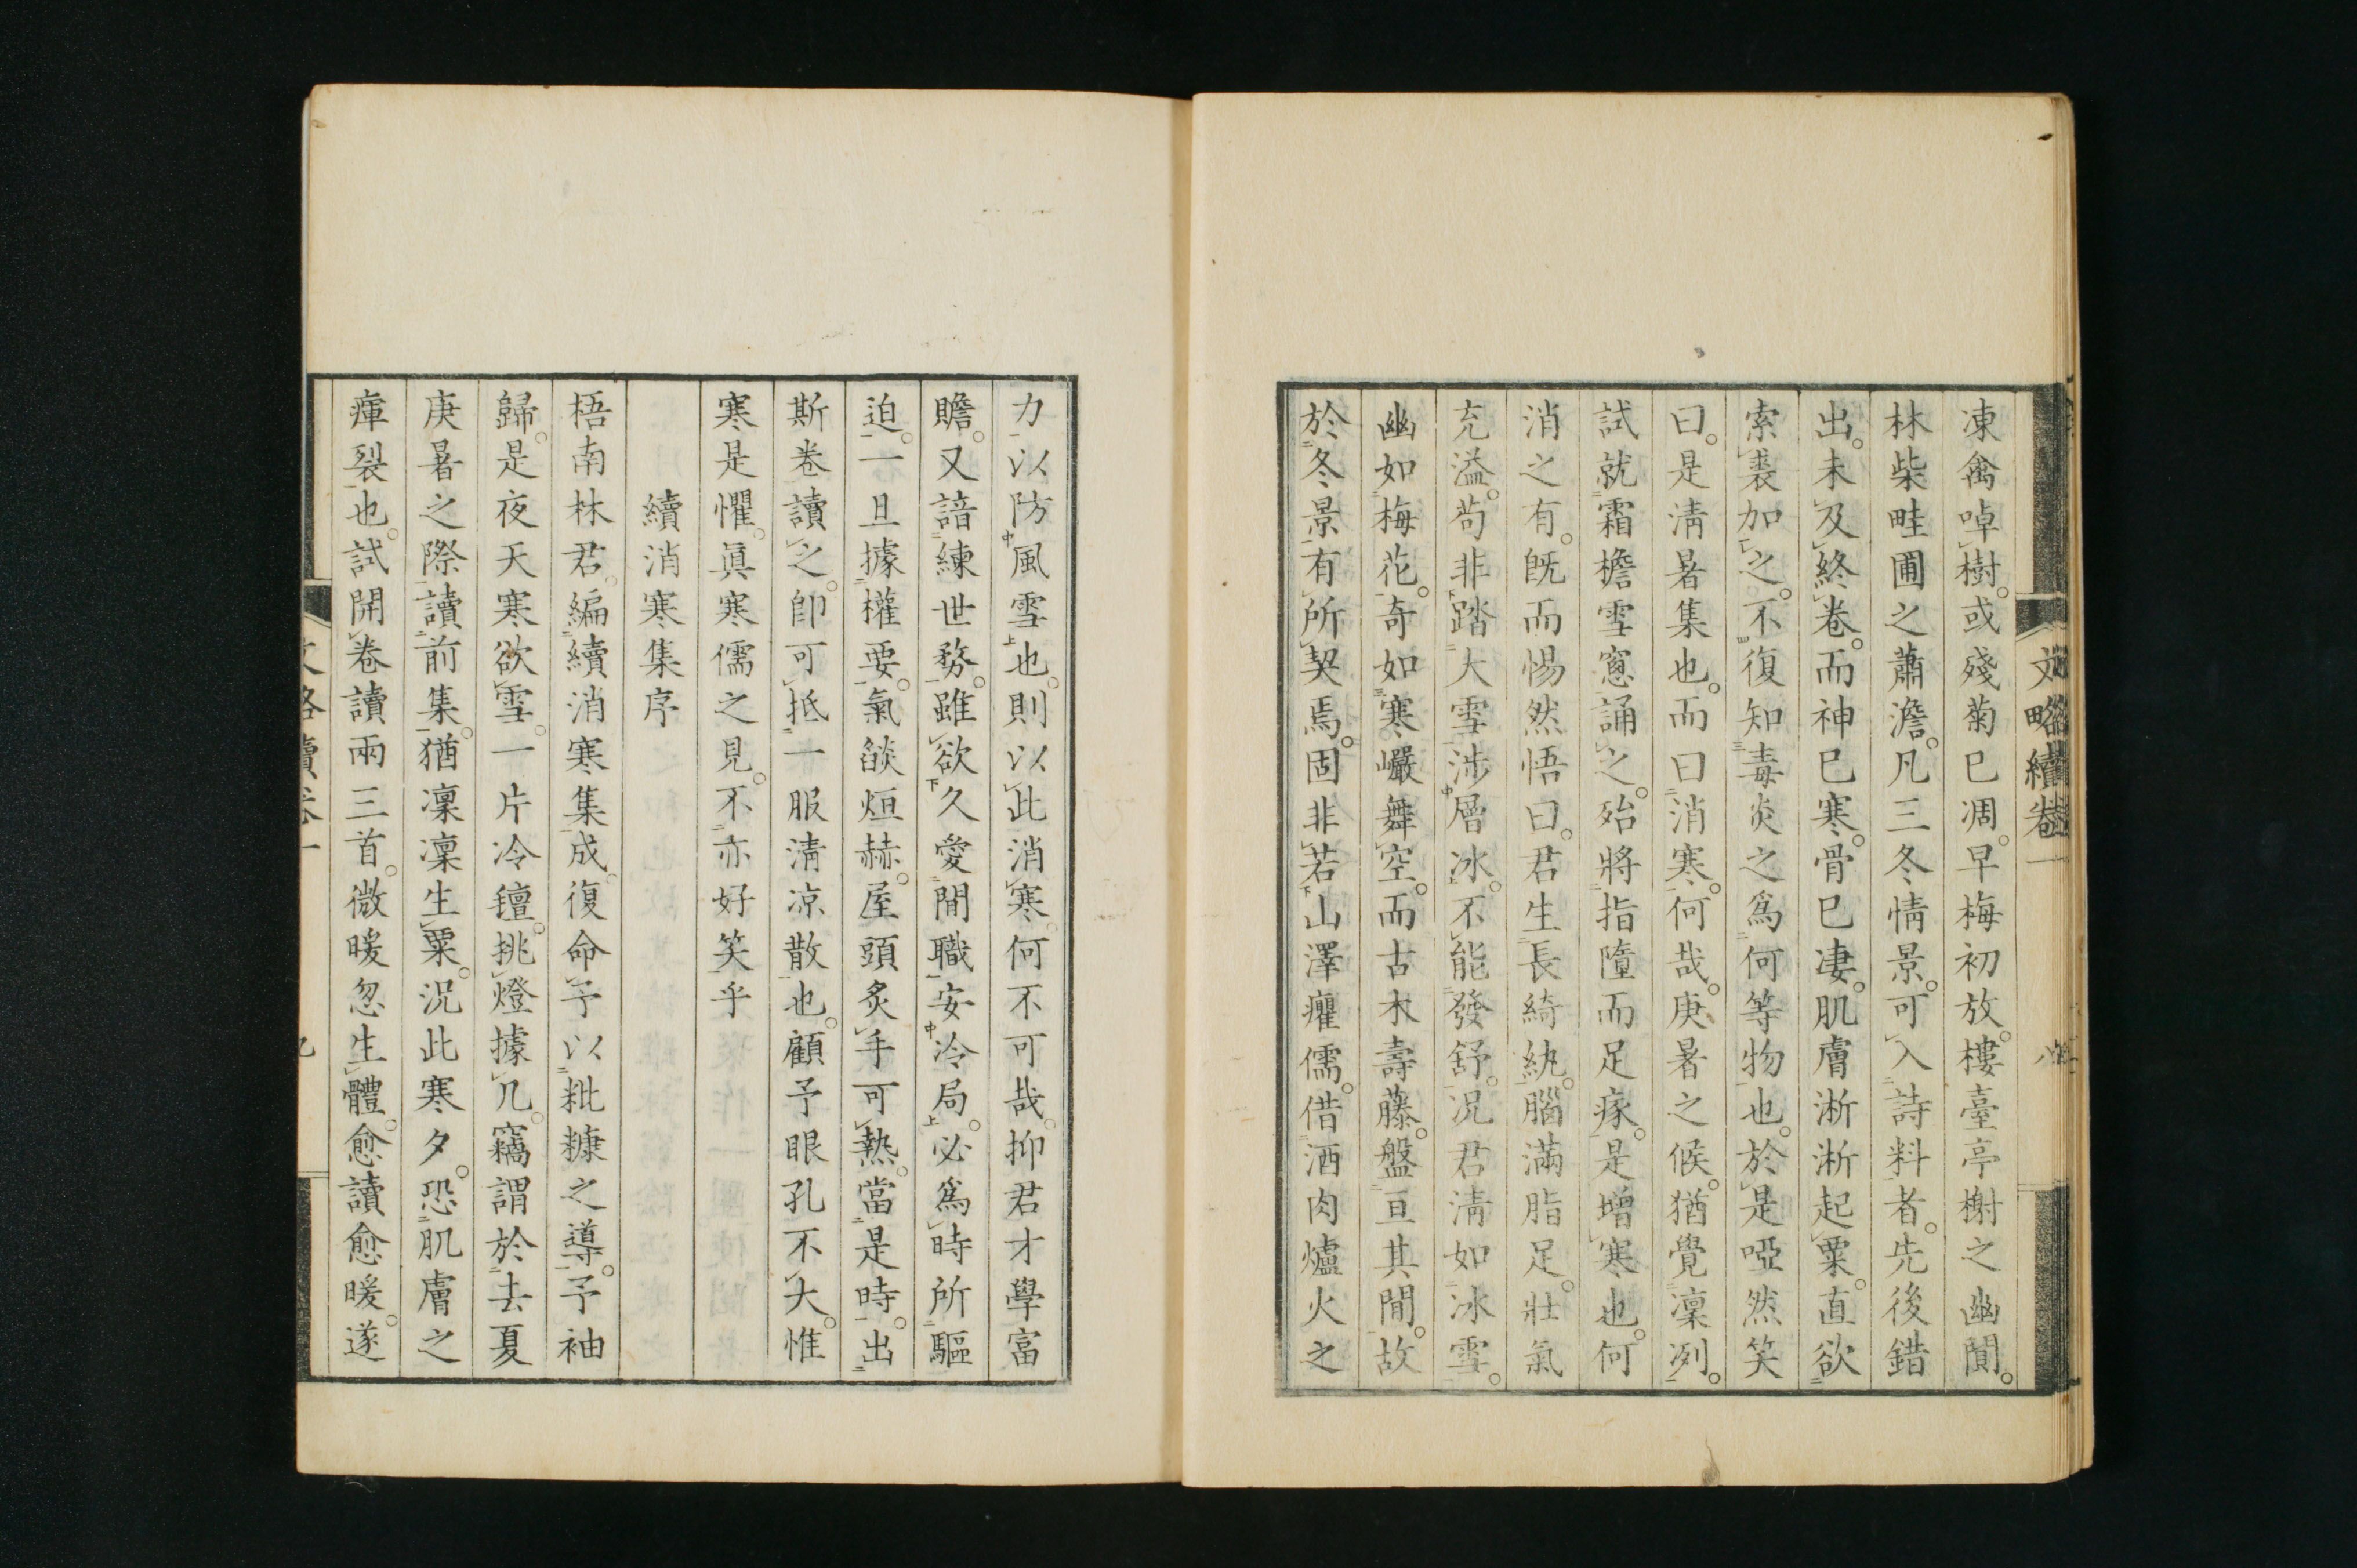 文略續卷一 八
凍禽啅樹。或殘菊已凋。早梅初放。樓臺亭榭之幽閴。
林柴畦圃之蕭澹。凡三冬情景。可入詩料者。先後錯
出。未及終卷。而神已寒。骨已凄。肌膚淅淅起粟。直欲
索裘加之。不復知毒炎之爲何等物也。於是啞然笑
曰。是淸暑集也。而曰消寒。何哉。庚暑之候。猶覺凜冽。
試就霜檐雪窻誦之。殆將指墮而足瘃。是增寒也。何
消之有。旣而惕然悟曰。君生長綺紈。腦滿脂足。壯氣
充溢。苟非踏大雪涉層冰。不能發舒。况君淸如冰雪。
幽如梅花。奇如寒巖舞空。而古木壽藤。盤亘其閒。故
於冬景有所契焉。固非若山澤癯儒。借酒肉爐火之
力以防風雪也。則以此消寒。何不可哉。抑君才學富
贍。又諳練世務。雖欲久愛閒職安冷局。必爲時所驅
迫。一旦據權要。氣燄烜赫。屋頭炙手可熱。當是時。出
斯卷讀之。卽可抵一服淸凉散也。顧予眼孔不大。惟
寒是懼。眞寒儒之見。不亦好笑乎
續消寒集序
梧南林君。編續消寒集成。復命予以粃糠之導。予袖
歸。是夜天寒欲雪。一片冷氊。挑燈據几。竊謂於去夏
庚暑之際讀前集。猶凜凜生粟。况此寒夕。恐肌膚之
瘒裂也。試開卷讀兩三首。微暖忽生體。愈讀愈暖。遂
文略續卷一 九